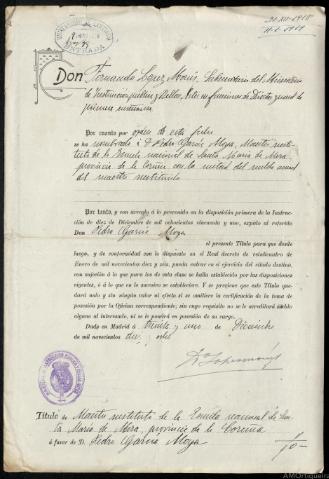 ENTRADA
Don Fernando Lopez Monis, Subsecretario del Ministerio
de Instrucción pública y Bellas Artes en funciones de Director general de
primera enseñanza
Por cuanto por orden de esta fecha
se ha nombrado á D. Pedro García Moya, Maestro susti-
tuto de la Escuela nacional de Santa María de Mera,
provincia de la Coruña con la mitad del sueldo
del maestro sustituido
Por tanto, y con arreglo á lo prevenido en la disposición primera de la Instruc-
ción de diez de Diciembre de mil ochocientos cincuenta y uno, expido al referido
Don Pedro García Moya
el presente Título para que desde
luego, y de conformidad con lo dispuesto en el Real decreto de
Enero de mil novecientos diez y seis, pueda entrar en el ejercicio del citado destino,
con sujeción á lo que para los de esta clase se halla establecido por las disposiciones
vigentes, ó á lo que en lo sucesivo se estableciere. Y se previene que este Título que-
dará nulo y sin ningún valor ni efecto si se omitiere la certificación de la toma de
posesión por la Oficina correspondiente, sin cuyo requisito no se le acreditará sueldo
alguno al interesado, ni se le pondrá en posesión de su cargo.
Dada en Madrid á treinta y uno de Diciembre
de mil novecientos diez
Título de Maestro sustituto de la Escuela nacional de San-
ta María de Mera, provincia de la Coruña
á favor de D. Pedro García Moya